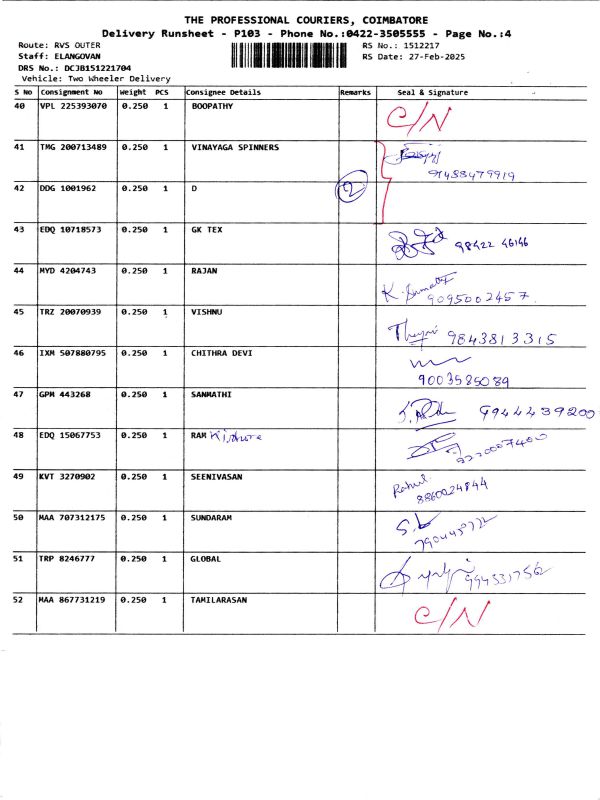 THE PROFESSIONAL COURIERS, COIMBATORE
Delivery Runsheet - P103 - Phone No.:0422-3505555 - Page No.:4
Route: RVS OUTER
RS No.: 1512217
Staff: ELANGOVAN
RS Date: 27-Feb-2025
DRS No.: DCJB151221704
Vehicle: Two Wheeler Delivery
S No Consignment No Weight PCS Consignee Details Remarks Seal & Signature
40 VPL 225393070 0.250 1 BOOPATHY C/N
41 TMG 200713489 0.250 1 VINAYAGA SPINNERS
42 DDG 1001962 0.250 1 D 2
43 EDQ 10718573 0.250 1 GK TEX 98422 46146
44 MYD 4204743 0.250 1 RAJAN
9095002457
45 TRZ 20070939 0.250 1 VISHNU 9843813315
46 IXM 507880795 0.250 1 CHITHRA DEVI
9003585089
47 GPM 443268 0.250 1 SANMATHI 9944439200
48 EDQ 15067753 0.250 1 RAM Kishore
49 KVT 3270902 0.250 1 SEENIVASAN Rahul
8860024844
50 MAA 707312175 0.250 1 SUNDARAM
51 TRP 8246777 0.250 1 GLOBAL
52 MAA 867731219 0.250 1 TAMILARASAN C/N